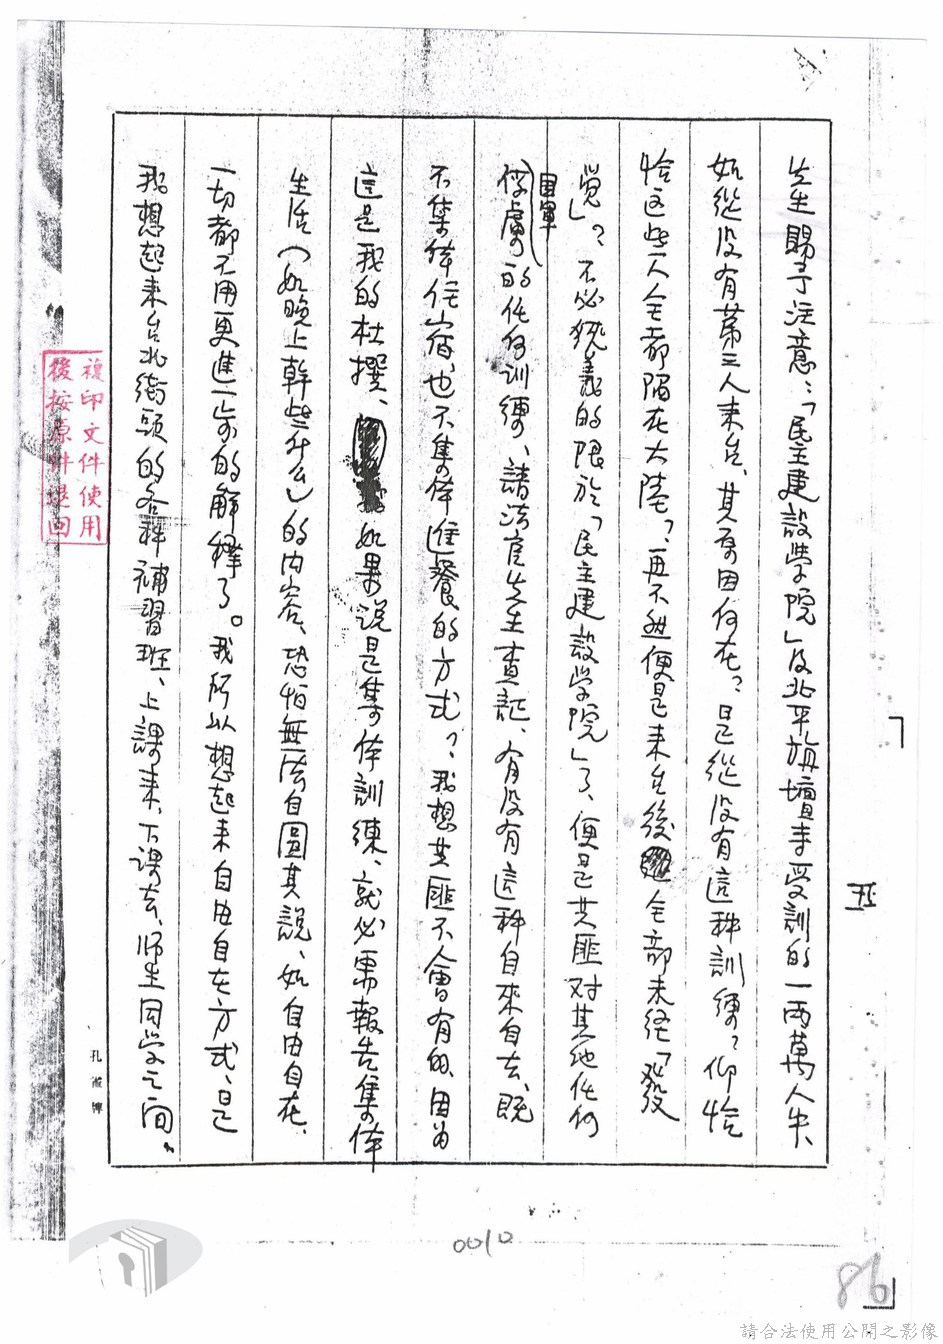 先生賜予注意：「民主建設學院」及北平旃壇寺受訓的一兩萬人失
如從沒有第三人来台、其原因何在？是從沒有這种訓練？仰恰
恰这些人全都陷在大陸？再不然便是来台後全部未经「發
覺」？不必狹義的限於「民主建設学院」了、便是共匪对其他任何
國軍
俘虜的任何訓練、請法官先生查証、有没有這种自來自去、既
不集体住宿、也不集体進餐的方式？我想共匪不會有的、因为
這是我的杜撰、如果说是集体訓練、就必需報告集体
生活（如晚上幹些什么）的内容、恐怕無法自圓其說、如自由自在、
一切都不用更進一步的解釋了。我所以想起来自由自在方式、是
我想起来台北街頭的各种補習班、上課来、下课去、师生同学之间、
孔
複印文件使用
後按原件退回
0010
86
請合法使用公開之影像